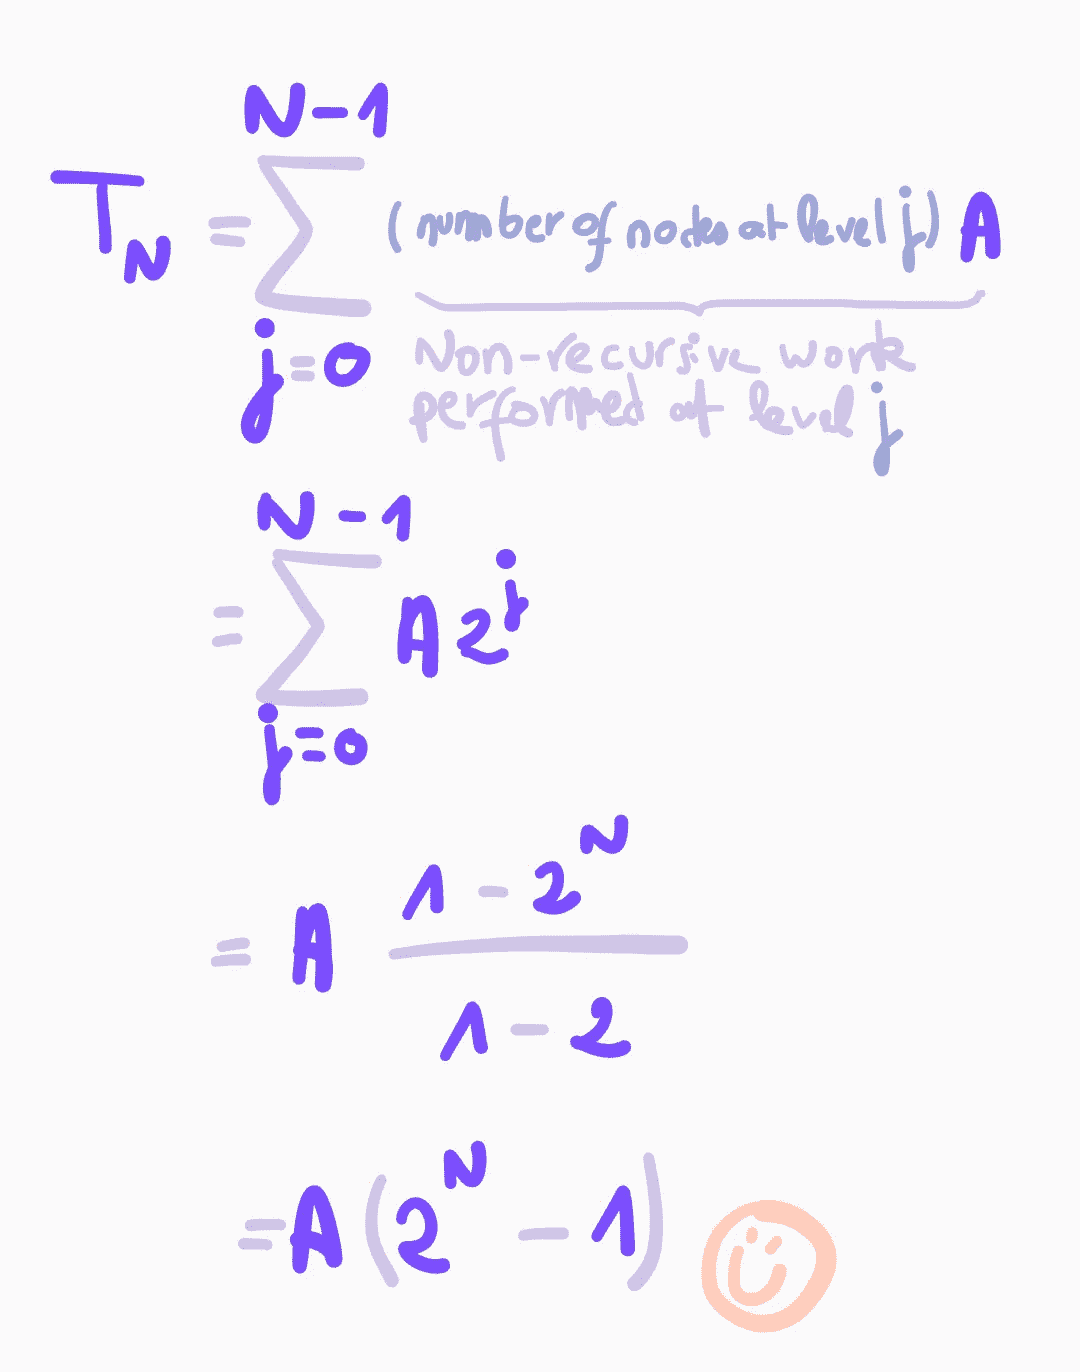 N-1
T_N = Σ (number of nodes at level j) A
j=0
Non-recursive work
performed at level j
N-1
= Σ A 2^j
j=0
= A (1 - 2^N) / (1 - 2)
= A (2^N - 1)